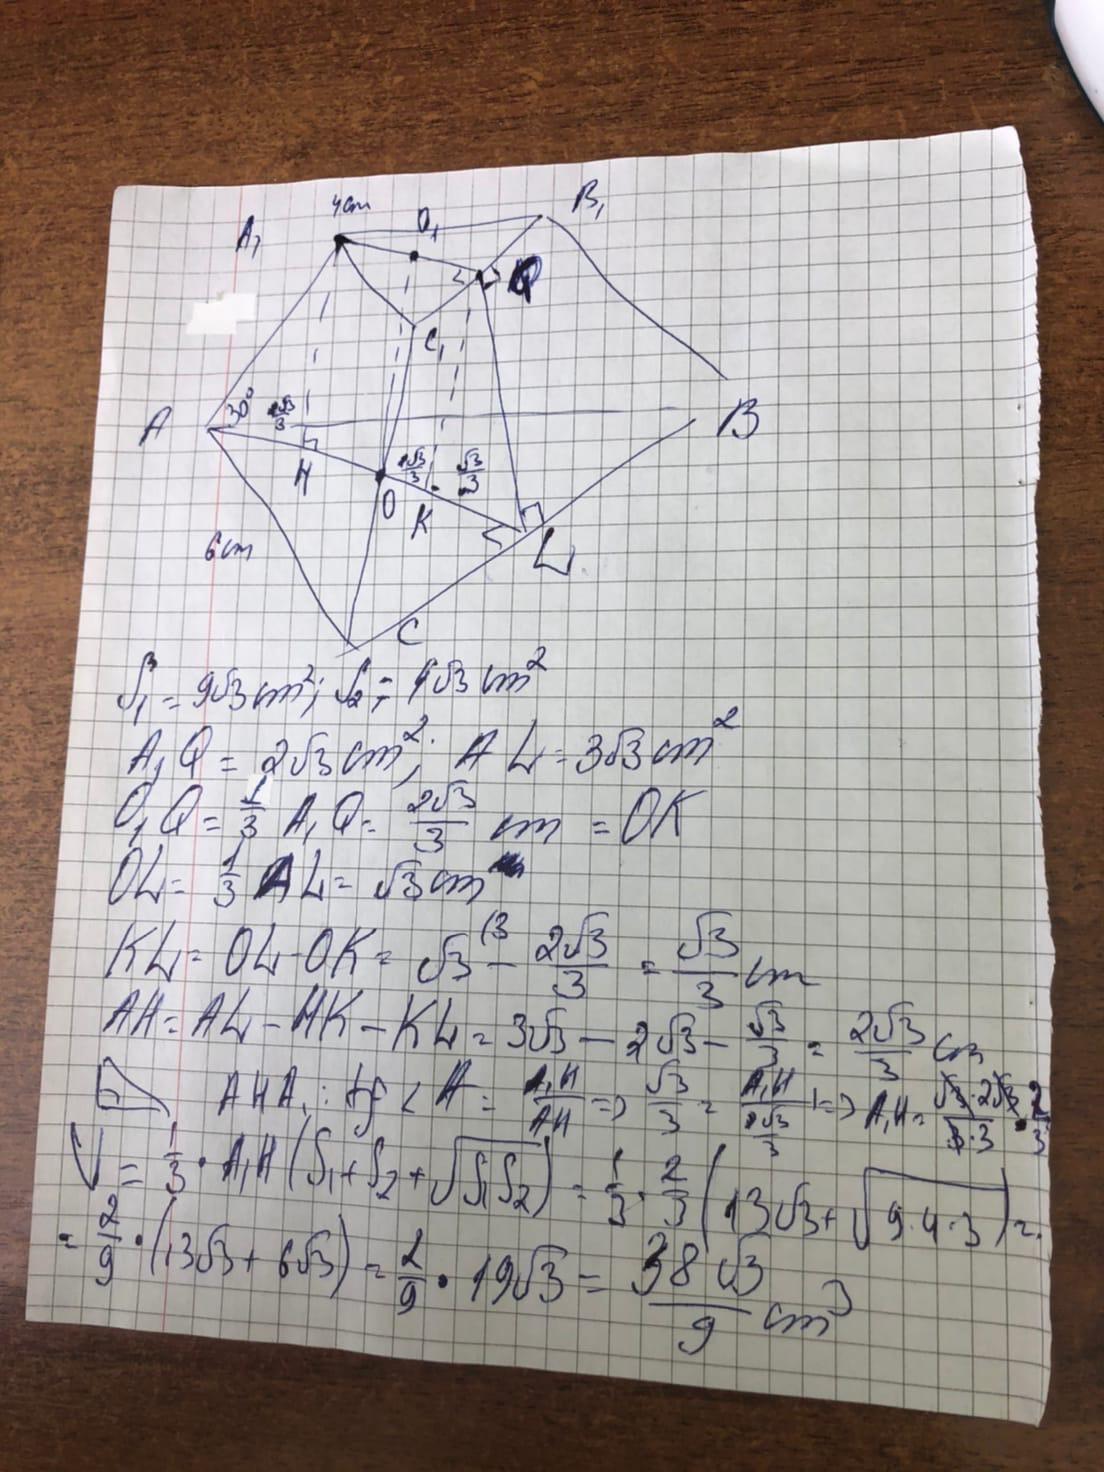 4cm
A₁
O₁
B₁
Q
C₁
30°
2√3/3
A
B
H
O
2√3/3
√3/3
K
L
6cm
C
S₁ = 9√3 cm²; S₂ = 4√3 cm²
A₁Q = 2√3 cm²; AL = 3√3 cm²
O₁Q = 1/3 A₁Q = 2√3/3 cm = OK
OL = 1/3 AL = √3 cm
KL = OL - OK = √3 (3 - 2√3/3 = √3/3 cm
AH = AL - HK - KL = 3√3 - 2√3 - √3/3 = 2√3/3 cm
AHA₁: tg < A = A₁H/AH => √3/3 = A₁H/(2√3/3) => A₁H = √3·2√3/3·3 = 2/3
V = 1/3 · A₁H (S₁+S₂+√S₁S₂) = 1/3 · 2/3 (13√3 + √9·4·3) =
= 2/9 · (13√3 + 6√3) = 2/9 · 19√3 = 38√3/9 cm³